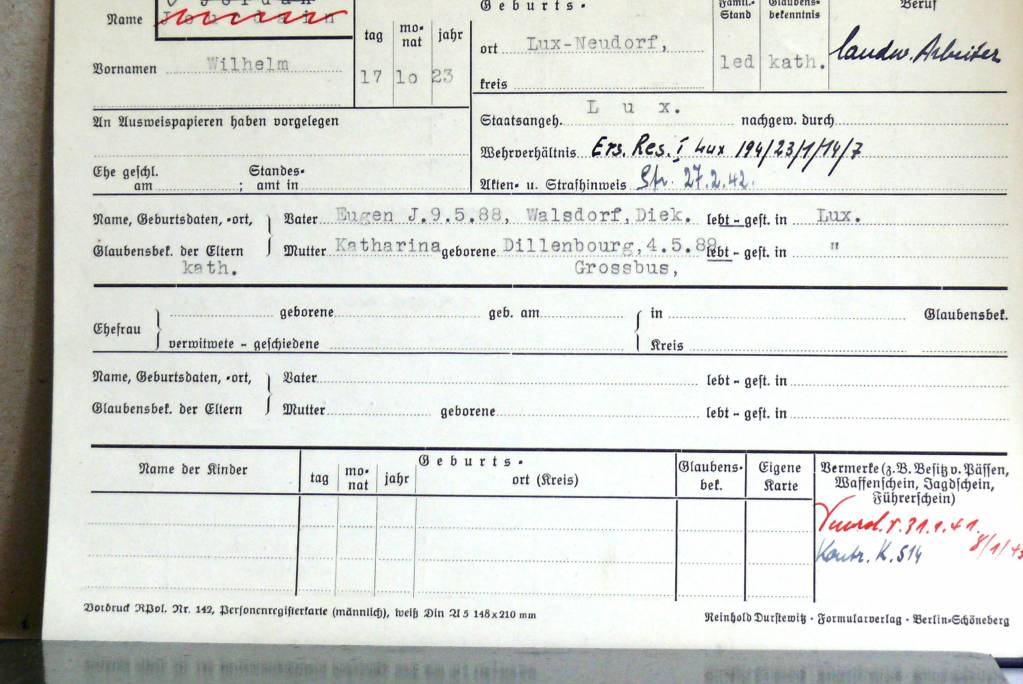 Geburts-
Famil.- Stand
Glaubens- bekenntnis
Beruf
Name
tag mo- nat jahr
ort Lux-Neudorf,
led kath. landw. Arbeiter
Vornamen Wilhelm
17 1o 23
kreis
An Ausweispapieren haben vorgelegen
Staatsangeh. Lux. nachgew. durch
Wehrverhältnis Ers. Res. I Lux 194/23/1/14/7
Ehe geschl. am ; Standes- amt in
Akten- u. Strafhinweis Str. 27.2.42.
Name, Geburtsdaten, -ort, Vater Eugen J.9.5.88, Walsdorf,Diek. lebt - gest. in Lux.
Glaubensbek. der Eltern Mutter Katharina geborene Dillenbourg,4.5.89 lebt - gest. in "
kath. Grossbus,
geborene geb. am in Glaubensbek.
Ehefrau
verwitwete - geschiedene Kreis
Name, Geburtsdaten, -ort, Vater lebt - gest. in
Glaubensbek. der Eltern Mutter geborene lebt - gest. in
Name der Kinder
tag mo- nat jahr
Geburts-
ort (Kreis)
Glaubens- bek.
Eigene Karte
Vermerke (z.B. Besitz v. Pässen,
Waffenschein, Jagdschein,
Führerschein)
31.1.41.
8/1/43
Kontr. K. 514
Vordruck RPol. Nr. 142, Personenregisterkarte (männlich), weiß Din A 5 148x210 mm
Reinhold Durstewitz · Formularverlag · Berlin-Schöneberg